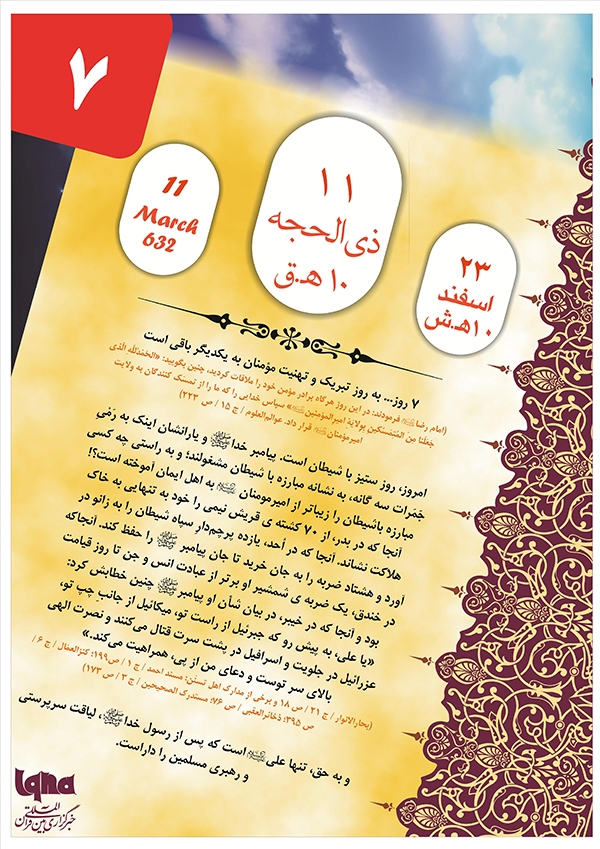 ۷
11
March
632
۱۱
ذی‌الحجه
۱۰ ه‍.ق
۲۳
اسفند
۱۰ ه‍.ش
۷ روز... به روز تبریک و تهنیت مؤمنان به یکدیگر باقی است
(امام رضا فرمودند: در این روز هرگاه برادر مؤمن خود را ملاقات کردید، چنین بگویید: «الحَمدُلله الَّذی
جَعَلَنا مِنَ المُتَمَسّکینَ بِوِلایَةِ امیرالمؤمنین» سپاس خدایی را که ما را از تمسک کنندگان به ولایت
امیرمؤمنان قرار داد. عوالم‌العلوم / ج ۱۵ / ص ۲۲۳)
امروز، روز ستیز با شیطان است. پیامبر خدا و یارانشان اینک به رَمْیِ
جَمَرات سه گانه، به نشانه مبارزه با شیطان مشغولند؛ و به راستی چه کسی
مبارزه باشیطان را زیباتر از امیرمومنان به اهل ایمان آموخته است؟!
آنجا که در بدر، از ۷۰ کشته ی قریش نیمی را خود به تنهایی به خاک
هلاکت نشاند. آنجا که در اُحد، یازده پرچم‌دار سپاه شیطان را به زانو در
آورد و هشتاد ضربه را به جان خرید تا جان پیامبر را حفظ کند. آنجاکه
در خندق، یک ضربه ی شمشیر او برتر از عبادت انس و جن تا روز قیامت
بود و آنجا که در خیبر، در بیان شأن او پیامبر چنین خطابش کرد:
«یا علی، به پیش رو که جبرئیل از راست تو، میکائیل از جانب چپ تو،
عزرائیل در جلویت و اسرافیل در پشت سرت قتال می‌کنند و نصرت الهی
بالای سر توست و دعای من از پی، همراهیت می‌کند.»
(بحارالانوار / ج ۲۱ / ص ۱۸ و برخی از مدارک اهل تسنن: مسند احمد / ج ۱ / ص۱۹۹؛ کنزالعمّال / ج ۶ /
ص ۳۹۵؛ ذخائرالعقبی / ص ۷۶؛ مستدرک الصحیحین / ج ۳ / ص ۱۷۲)
و به حق، تنها علی است که پس از رسول خدا، لیاقت سرپرستی
و رهبری مسلمین را داراست.
iqna
خبرگزاری بین‌المللی قرآن